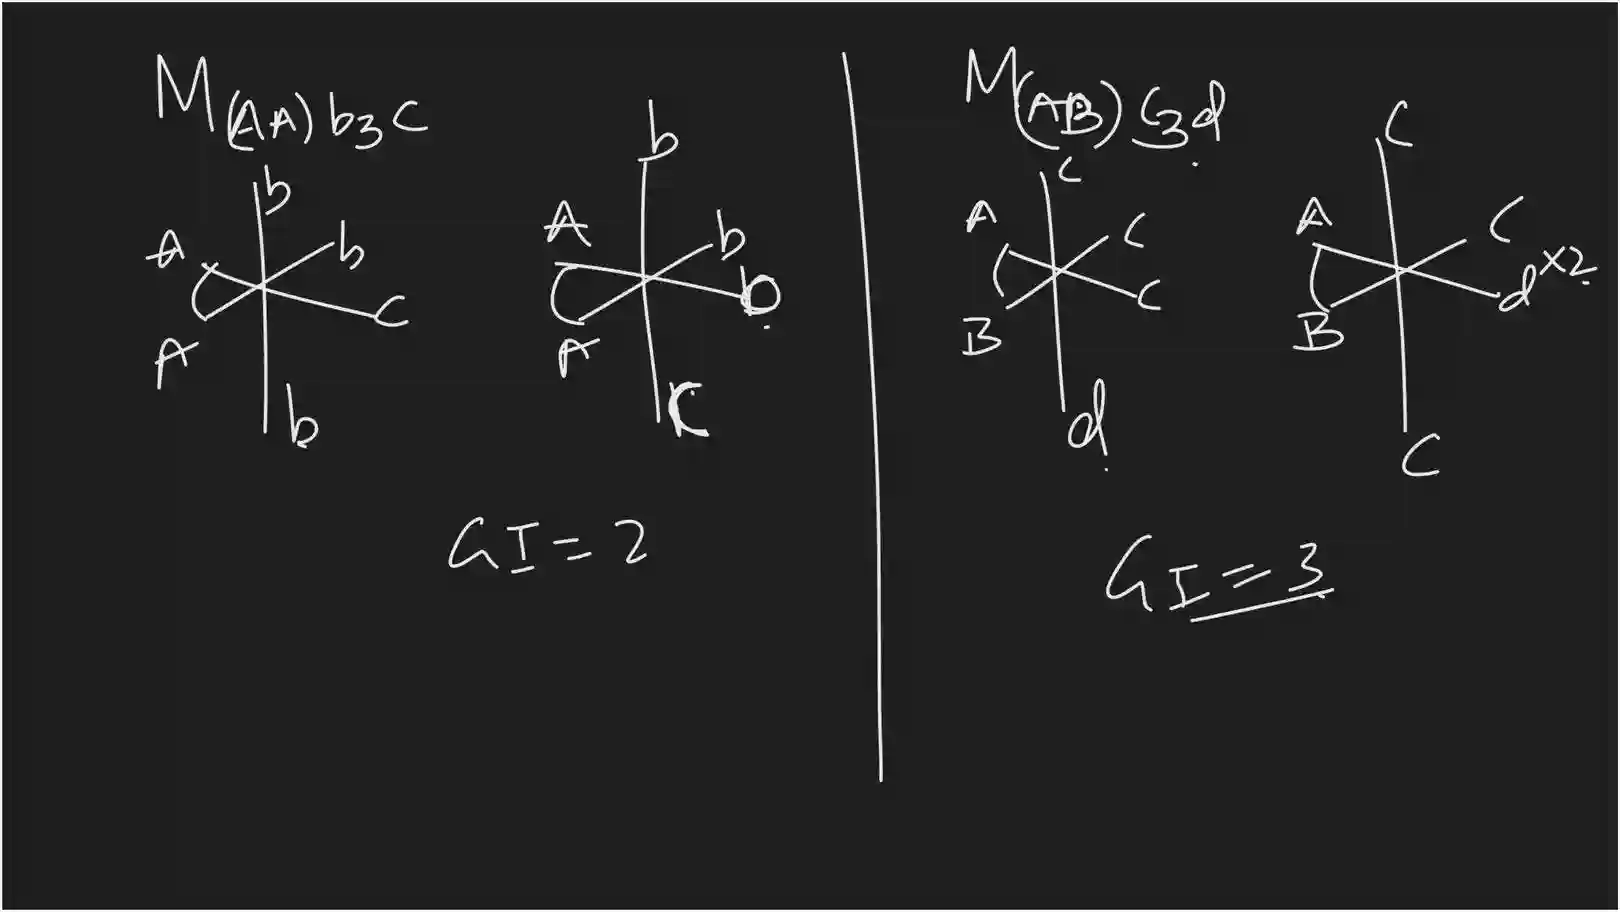 M(AA)b3c
b
A
b
c
A
b
b
A
b
b
A
c
GI = 2
M(AB)c3d
c
A
c
c
B
d
c
A
c
d ×2
B
c
GI = 3